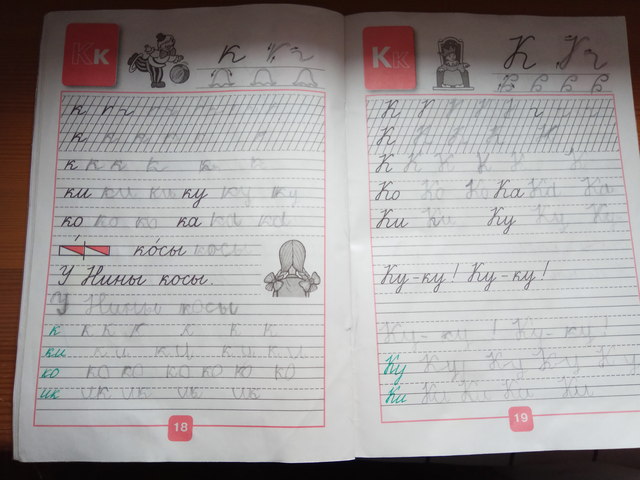 Кк
К г
к п г
к к к к к к
к к к к к к
ки ки ки ку ку ку
ко ко ко ка ка ка
ко́сы косы
У Нины косы.
У Нины косы
к к к к к к к
ки ки ки ки ки
ко ко ко ко ко ко ко
ик ик ик ик ик
18
Кк
К
К
К К К К К К К
К К К К К
К К К К К К К
Ко Ко Ко Ка Ка Ка
Ки Ки Ку Ку Ку
Ку-ку! Ку-ку!
Ку-ку! Ку-ку!
Ку Ку Ку Ку Ку
Ки Ки Ки Ки Ки
19